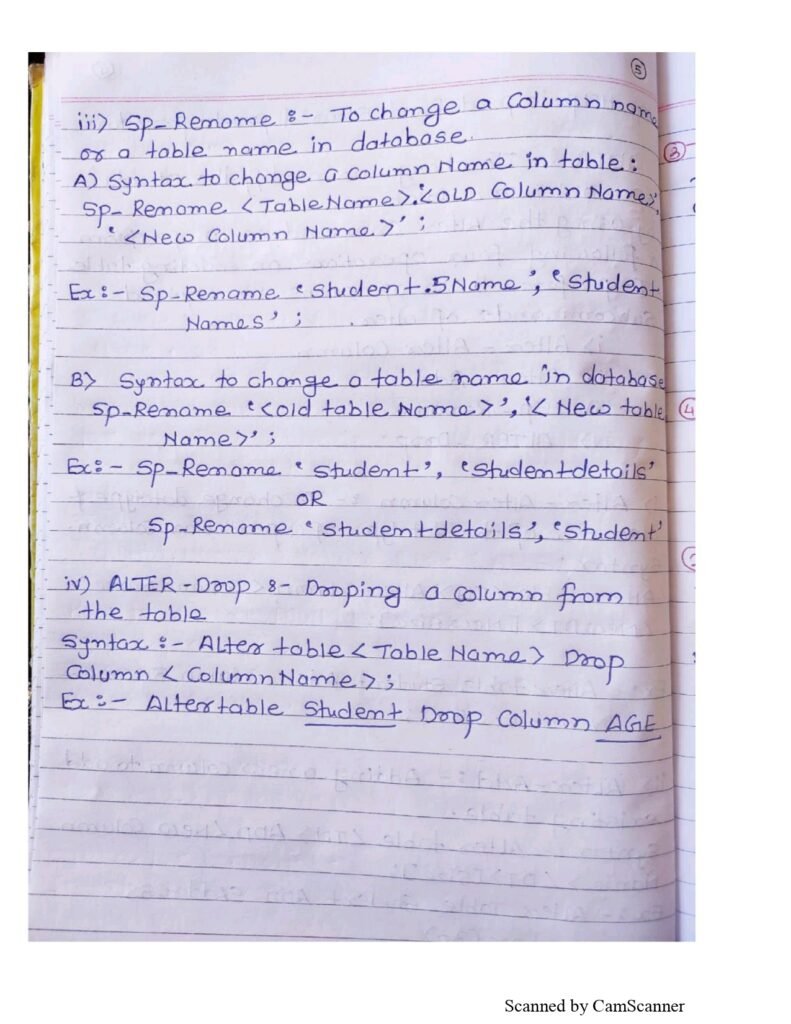 5
iii) Sp-Rename :- To change a Column name
or a table name in database
3
A) Syntax to change a Column Name in table:
Sp-Rename <TableName>.'<OLD Column Name>',
'<New Column Name>' ;
Ex:- Sp-Rename 'Student.SName', 'Student
Names' ;
B) Syntax to change a table name in database
Sp-Rename '<old table Name>', '< New table
4
Name>' ;
Ex:- Sp-Rename 'Student', 'Studentdetails'
OR
Sp-Rename 'Studentdetails', 'Student'
iv) ALTER-Drop :- Droping a column from
the table
Syntax :- Alter table < Table Name > Drop
Column < ColumnName > ;
Ex :- Altertable Student Drop Column AGE
Scanned by CamScanner